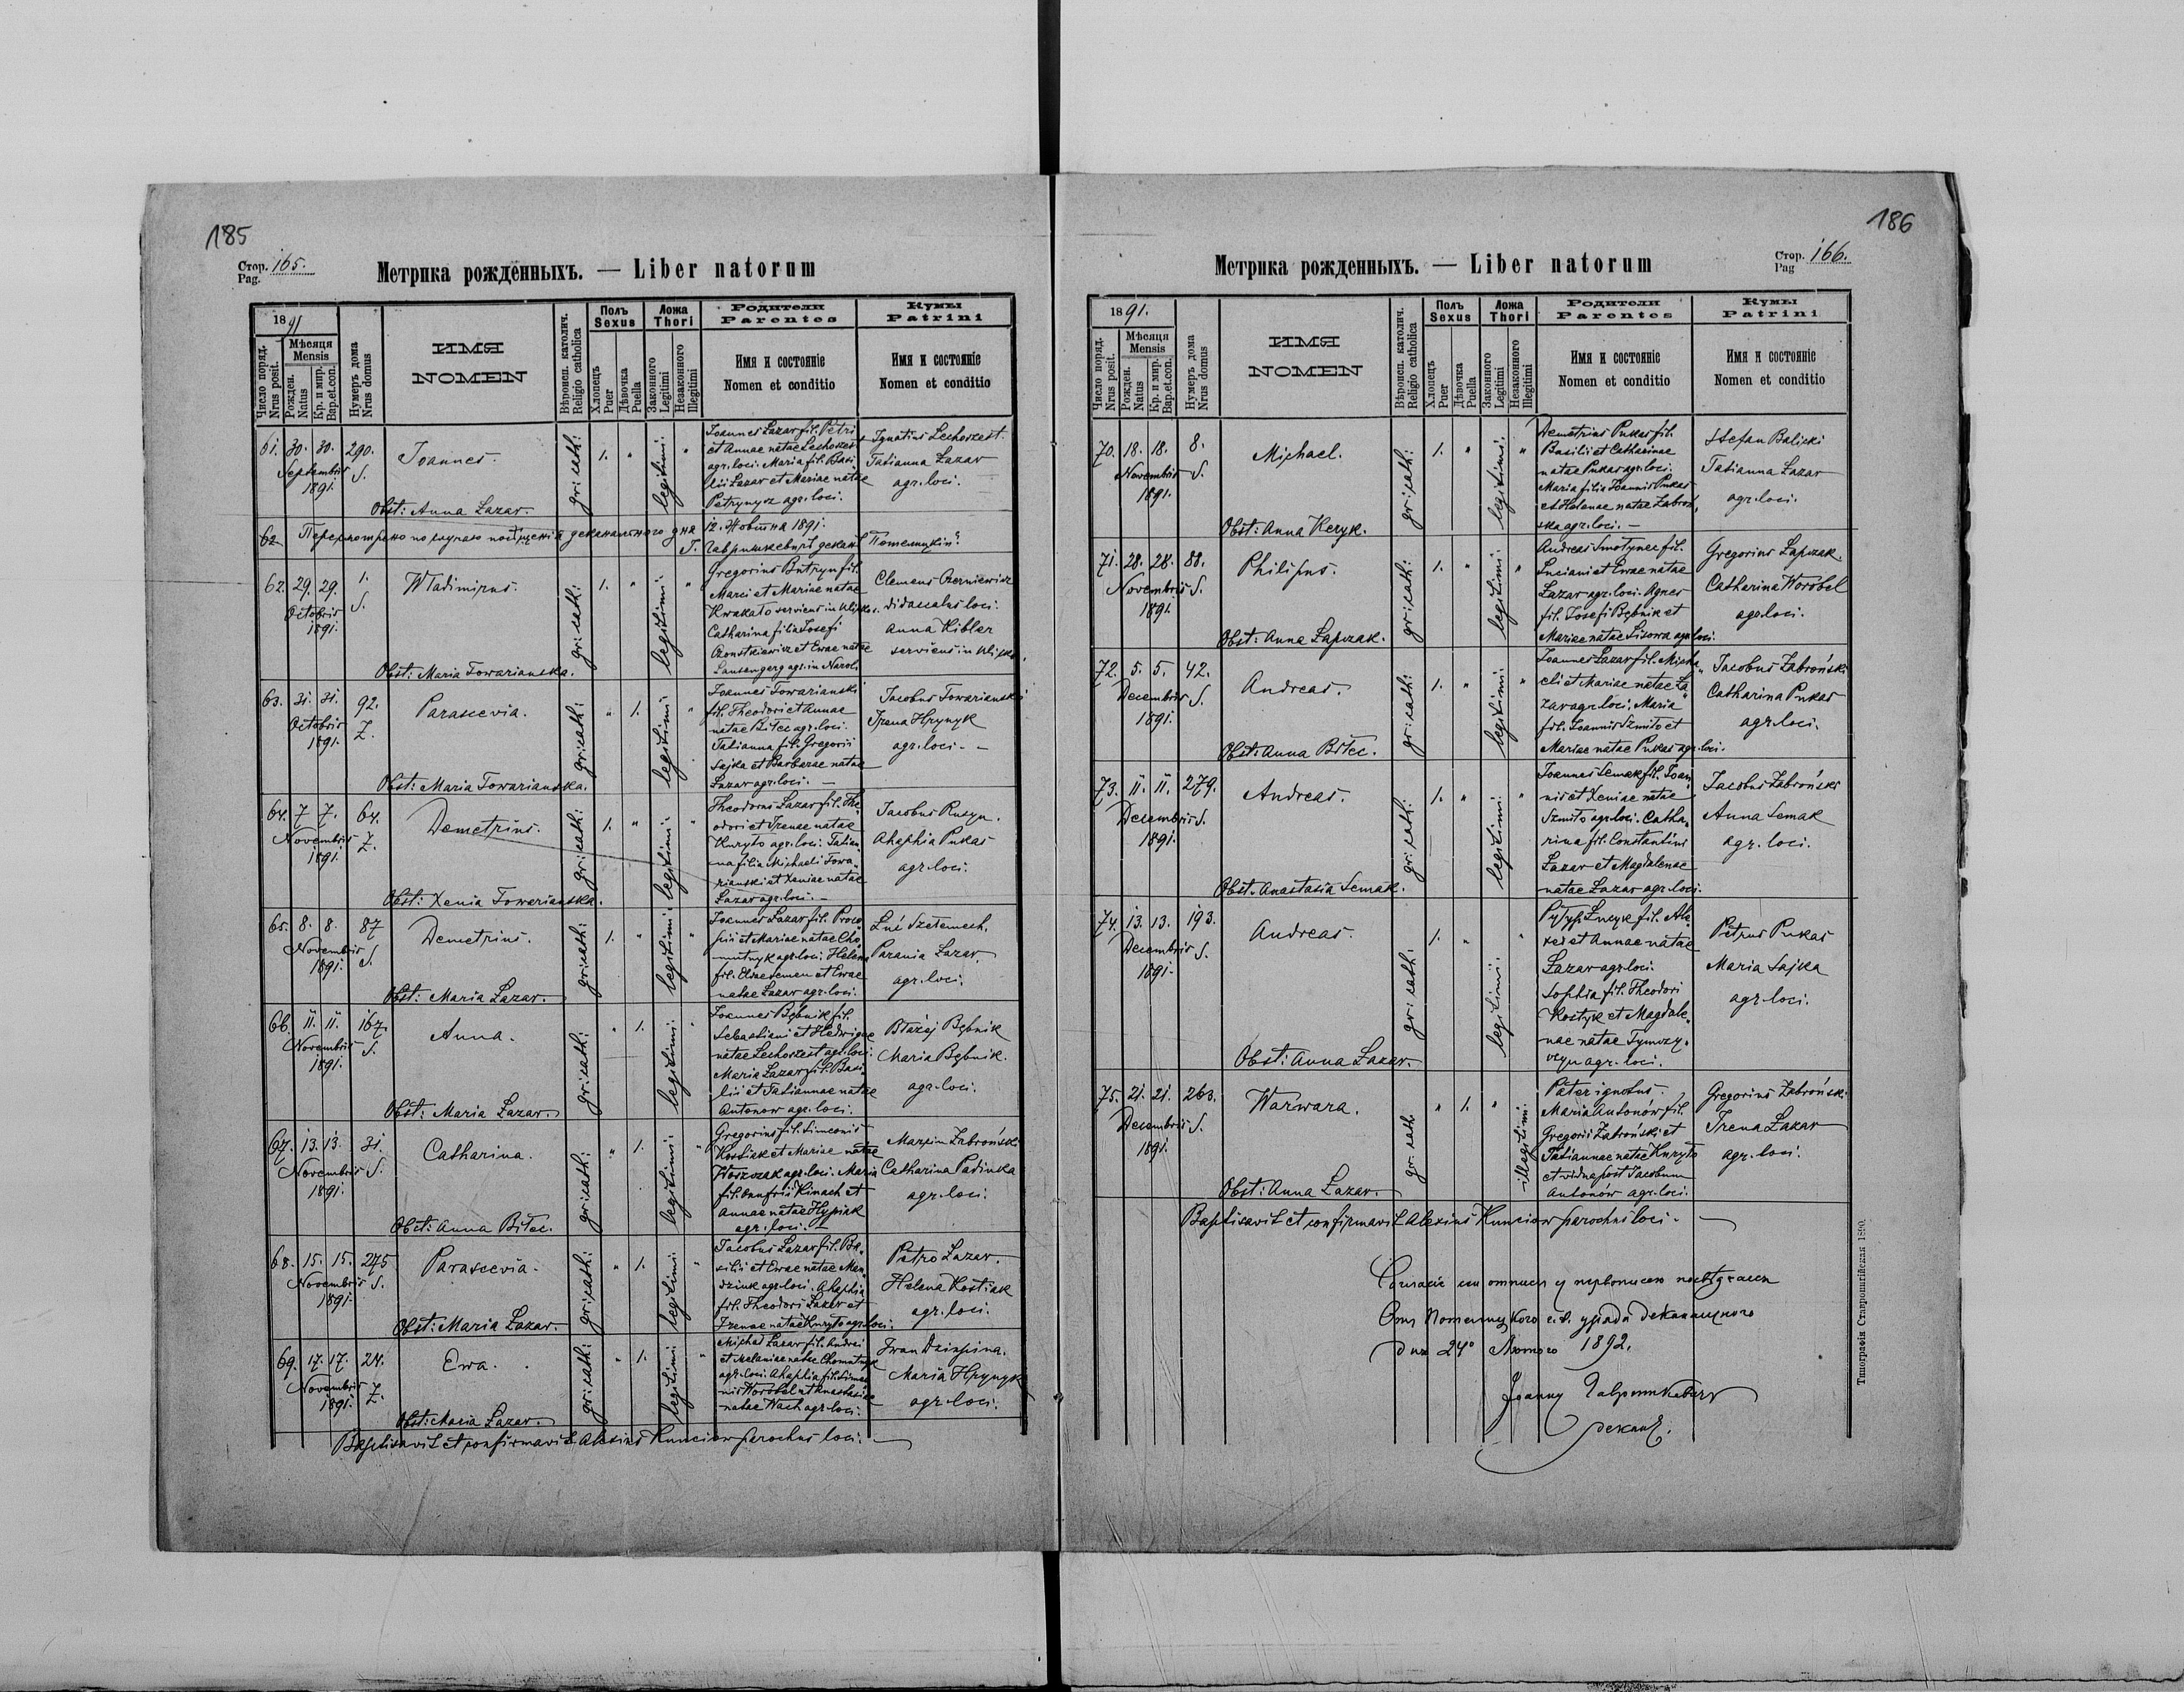 185
Стор. 165.
Pag.
Метрика рожденныхъ. — Liber natorum
1891
Число поряд. Nrus posit.
Мѣсяця Mensis
Рожден. Natus
Кр. и мир. Bap.et.con.
Нумеръ дома Nrus domus
ИМЯ
NOMEN
Вѣроисп. католич. Religio catholica
Полъ Sexus
Хлопецъ Puer
Дѣвочка Puella
Ложа Thori
Законного Legitimi
Незаконного Illegitimi
Родители
Parentes
Имя и состояніе
Nomen et conditio
Кумы
Patrini
Имя и состояніе
Nomen et conditio
61. 30. 30. 290. Joannes. gr: cath: 1. " legitimi: "
Septembris S.
1891.
Obst: Anna Lazar.
Joannes Lazar fil. Petri
et Annae natae Lechoszest
agr. loci. Maria fil. Basi
lii Lazar et Mariae natae
Petrynycz agr. loci.
Ignatius Lechoszest.
Tatianna Lazar
agr. loci.
62 деканального дня 12. Жовтня 1891.
62. 29. 29. 1. Wladimirus. gr: cath: 1. " legitimi: "
Octobris S.
1891.
Obst: Maria Towarianska.
Gregorius Butryn fil.
Marci et Mariae natae
Kwakato serviens in
Catharina filia Josefi
et Ewae natae
agr. in Narol.
Clemens Czerniewicz
didascalus loci.
Anna Kibler
serviens in
63. 31. 31. 92. Parascevia. gr: cath: " 1. legitimi: "
Octobris Z.
1891.
Obst: Maria Towarianska.
Joannes Towarianski
fil. Theodori et Annae
natae Biłec agr. loci.
Tatianna fil. Gregorii
Sajka et Barbarae natae
Lazar agr. loci. —
Jacobus Towarianski
Irena Hrynyk
agr. loci. —
64. 7 7. 64. Demetrius. gr: cath: 1. " legitimi: "
Novembris Z.
1891.
Obst: Xenia Towarianska.
Theodorus Lazar fil. The
odori et Irenae natae
Kuryło agr. loci. Tatian„
na filia Michaeli Towa„
rianski et Xeniae natae
Lazar agr. loci. —
Jacobus Rusyn.
Ahaphia Pukas
agr. loci.
65. 8. 8. 87 Demetrius. gr: cath: 1. " legitimi: "
Novembris S.
1891.
Obst: Maria Lazar.
Joannes Lazar fil. Proco
pii et Mariae natae Cho„
mutnyk agr. loci. Helena
fil. Semen et Ewae
natae Lazar agr. loci.
Parania Lazar.
agr. loci.
66. 11. 11. 167. Anna. gr: cath: " 1. legitimi: "
Novembris S.
1891.
Obst: Maria Lazar.
Joannes Bębnik fil.
Sebastiani et Hedvigae
natae Lechoszest agr. loci.
Maria Lazar fil. Basi„
lii et Tatiannae natae
Antonow agr. loci.
Błażej Bębnik
Maria Bębnik.
agr. loci.
67. 13. 13. 31. Catharina. gr: cath: " 1. legitimi: "
Novembris S.
1891.
Obst: Anna Biłec.
Gregorius fil. Simeonis
Kostiak et Mariae natae
Woszczak agr. loci. Maria
fil. Onufrii Kinach et
Annae natae Hypiak
agr. loci. —
Maxim Zabroński
Catharina Padinka
agr. loci.
68. 15. 15. 275 Parascevia. gr: cath: " 1. legitimi: "
Novembris S.
1891.
Obst: Maria Lazar.
Jacobus Lazar fil. Ba„
silii et Ewae natae Man„
dziuk agr. loci. Ahaphia
fil. Theodori Lazar et
Irenae natae Kuryło agr. loci.
Petro Lazar.
Helena Kostiak
agr. loci.
69. 17. 17. 24. Ewa. gr: cath: " 1. legitimi: "
Novembris Z.
1891.
Obst: Maria Lazar.
Michael Lazar fil. Andrei
et Melaniae natae Chomutnyk
agr. loci. Ahaphia fil. Simeo„
nis Worobel et Anastasiae
natae Wach agr. loci.
Iwan Dziupina.
Maria Hrynyk
agr. loci.
Baptisavit et confirmavit Alexius Kunciow parochus loci. —
186
Стор. 166.
Pag
Метрика рожденныхъ. — Liber natorum
1891.
Число поряд. Nrus posit.
Мѣсяця Mensis
Рожден. Natus
Кр. и мир. Bap.et.con.
Нумеръ дома Nrus domus
ИМЯ
NOMEN
Вѣроисп. католич. Religio catholica
Полъ Sexus
Хлопецъ Puer
Дѣвочка Puella
Ложа Thori
Законного Legitimi
Незаконного Illegitimi
Родители
Parentes
Имя и состояніе
Nomen et conditio
Кумы
Patrini
Имя и состояніе
Nomen et conditio
70. 18. 18. 8. Michael. gr: cath: 1. " legitimi: "
Novembris S.
1891.
Obst: Anna Keryk.
Demetrius Pukas fil.
Basilii et Catharinae
natae Pukas agr. loci.
Maria filia Joannis Pukas
et Helenae natae Zabroń„
ska agr. loci. —
Stefan Balicki
Tatianna Lazar
agr. loci.
71. 28. 28. 88. Philipus. gr: cath: 1. " legitimi: "
Novembris S.
1891.
Obst: Anna Lapczak.
Andreas Smotynec fil.
Luciani et Ewae natae
Lazar agr. loci. Agnes
fil. Josefi Bębnik et
Mariae natae Sisowa agr. loci.
Gregorius Lapczak.
Catharina Worobel
agr. loci.
72. 5. 5. 42. Andreas. gr: cath: 1. " legitimi: "
Decembris S.
1891.
Obst: Anna Biłec.
Joannes Lazar fil. Micha„
eli et Mariae natae La„
zar agr. loci. Maria
fil. Joannis Szmiło et
Mariae natae Pukas agr. loci.
Jacobus Zabroński
Catharina Pukas
agr. loci.
73. 11. 11. 279. Andreas. gr: cath: 1. " legitimi: "
Decembris S.
1891.
Obst. Anastasia Semak.
Joannes Semak fil. Joan„
nis et Xeniae natae
Szmiło agr. loci. Catha„
rina fil. Constantini
Lazar et Magdalenae
natae Lazar agr. loci.
Jacobus Zabroński
Anna Semak
agr. loci.
74. 13. 13. 193. Andreas. gr: cath: 1. " legitimi: "
Decembris S.
1891.
Obst: Anna Lazar.
Pyłyp Lucyk fil. Ale„
xei et Annae natae
Lazar agr. loci.
Sophia fil. Theodori
Kostyk et Magdale„
nae natae Tymczy„
szyn agr. loci.
Petrus Pukas
Maria Sajka
agr. loci.
75. 21. 21. 263. Warwara. gr: cath. " 1. " illegitimi:
Decembris S.
1891.
Obst: Anna Lazar.
Pater ignotus.
Maria Antonów fil.
Gregorii Zabroński et
Tatiannae natae Kuryło
et vidua post Jacobum
Antonów agr. loci.
Gregorius Zabroński
Irena Lazar
agr. loci.
Baptisavit et confirmavit Alexius Kunciow parochus loci. —
дня 24° Лютого 1892.
Типографія Ставропигійская 1890.